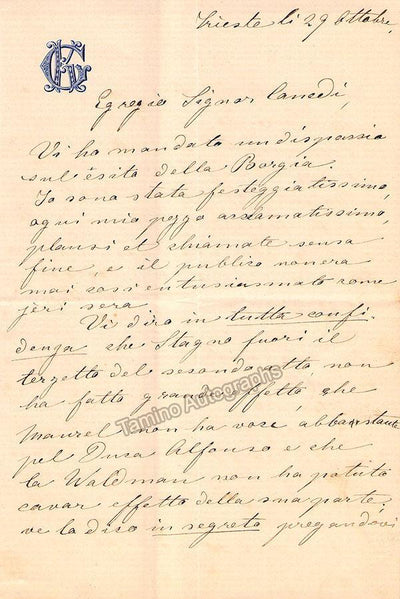 Trieste li 29 Ottobre,
Egregio Signor Canedi,
Vi ho mandato un dispaccio
sul'ésito della Borgia.
Io sono stata festeggiatissima,
ogni mio pezzo acclamatissimo,
plausi et chiamate sensa
fine, e il publico non era
mai cosi entusiasmato come
jeri sera
Vi diro in tutta confi.
denza che Stagno fuori il
terzetto del secondo atto, non
ha fatto grand effetto, che
Maurel non ha voce abbastanta
pel Duca Alfonso e che
la Waldman non ha potuto
cavar effetto della sua parte;
ve la dico in segreto pregandovi
Tamino Autographs